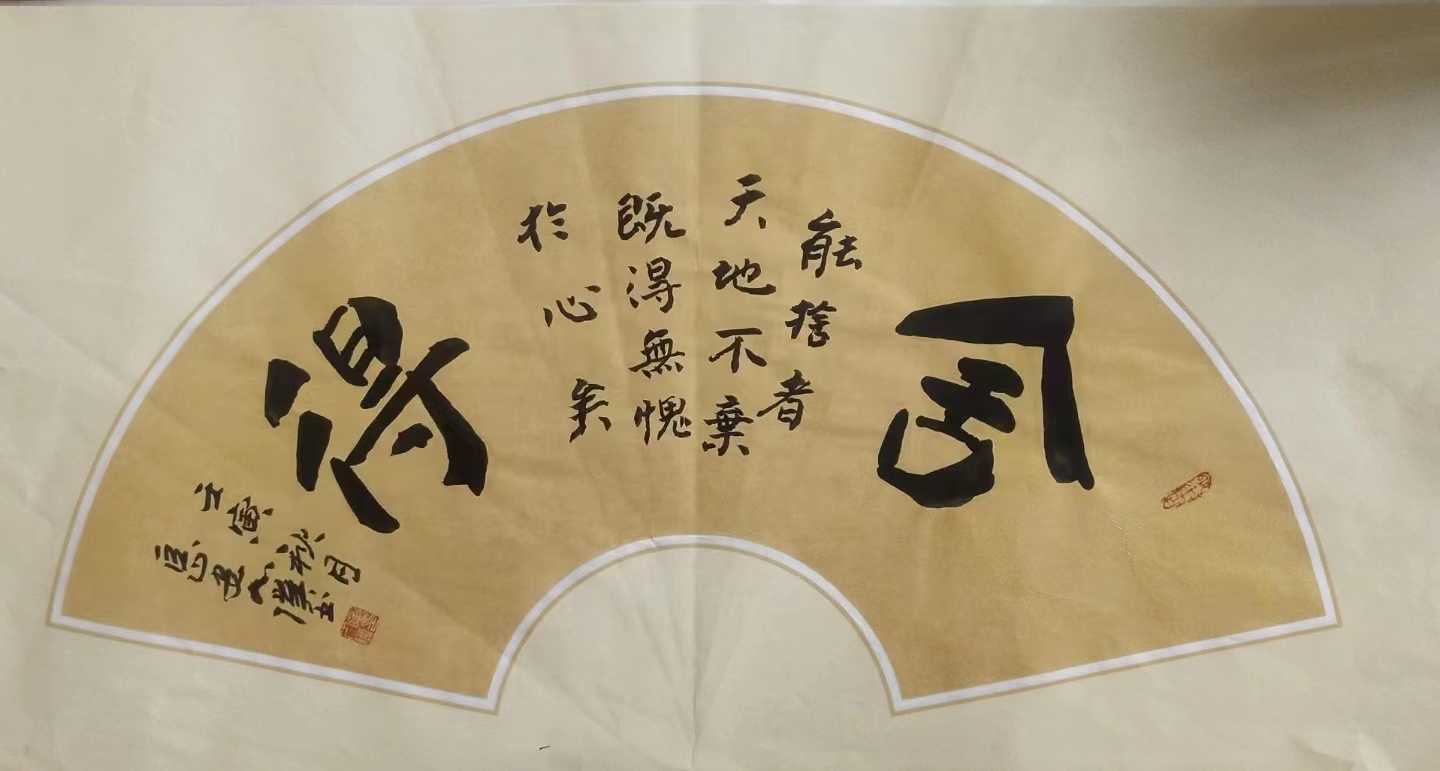 舍
能捨者
天地不棄
既得無愧
於心矣
得
壬寅秋月